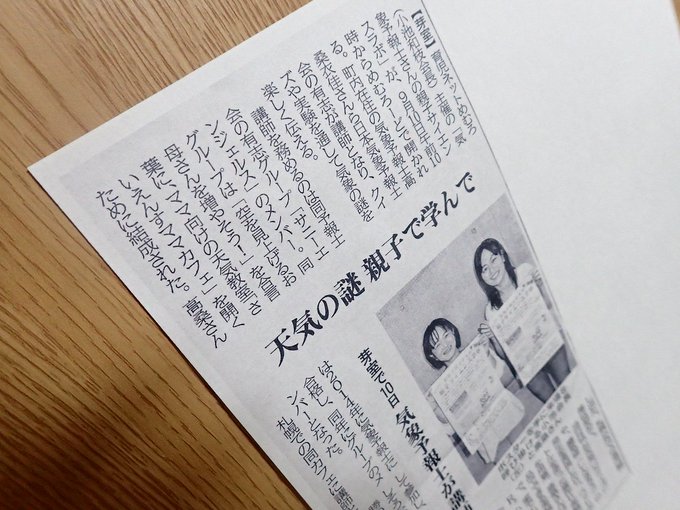 天気の謎 親子で学んで
芽室で10日
気象予報士が講
【芽室】育児ネットめむろ
(小池和枝会長)主催の「気
象予報士さんの親子サイエン
スラボ」が、9月10日午前10
時からめむろーどで開かれ
る。町内在住の気象予報士高
桑衣佳さんら日本気象予報士
会の有志が講師となり、クイ
ズや実験を通して気象の謎を
楽しく伝える。
講師を務めるのは同予報士
会の有志グループ「サニーエ
ンジェルス」のメンバー。同
グループは「空を見上げるお
母さんを増やそう!」を合言
葉に、ママ向けの天気教室「さ
いえんすママカフェ」を開く
ために結成された。高桑さん
は2014年に気象予報士に
合格し、同年にグループのメ
ンバーとなった。
札幌での同カフェに講師